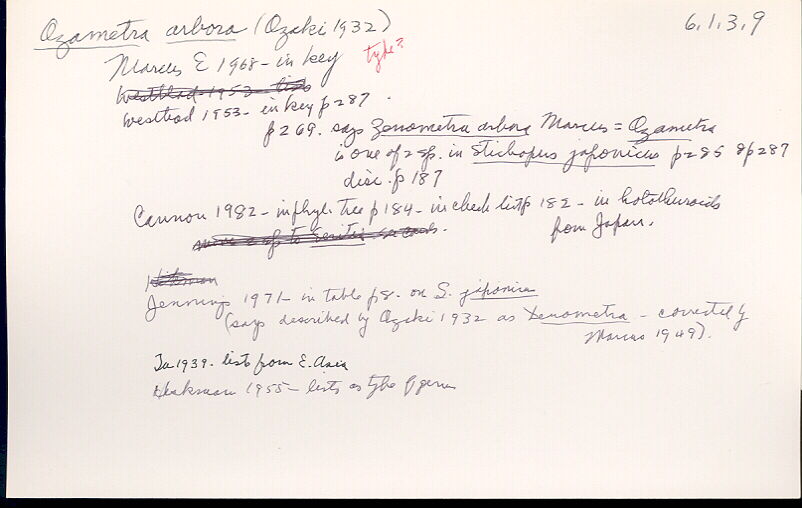 Ozametra arbora (Ozaki 1932) 6.1.3.9
Marcus E 1968 - in key type?
Westblad 1953 - lists
Westblad 1953 - in key p287.
p269. says Xenometra arbora Marcus = Ozametra
is one of 2 sp. in Stichopus japonicus p285 & p287
disc. p187
Cannon 1982 - in phyl. tree p184 - in check list p182 - in holothuroids
from Japan.
Hickman
Jennings 1971 - in table p8. on S. japonica
(says described by Ozaki 1932 as Xenometra - corrected by
Marcus 1949).
1939 - lists from E. Asia
1955 - lists as type of genus